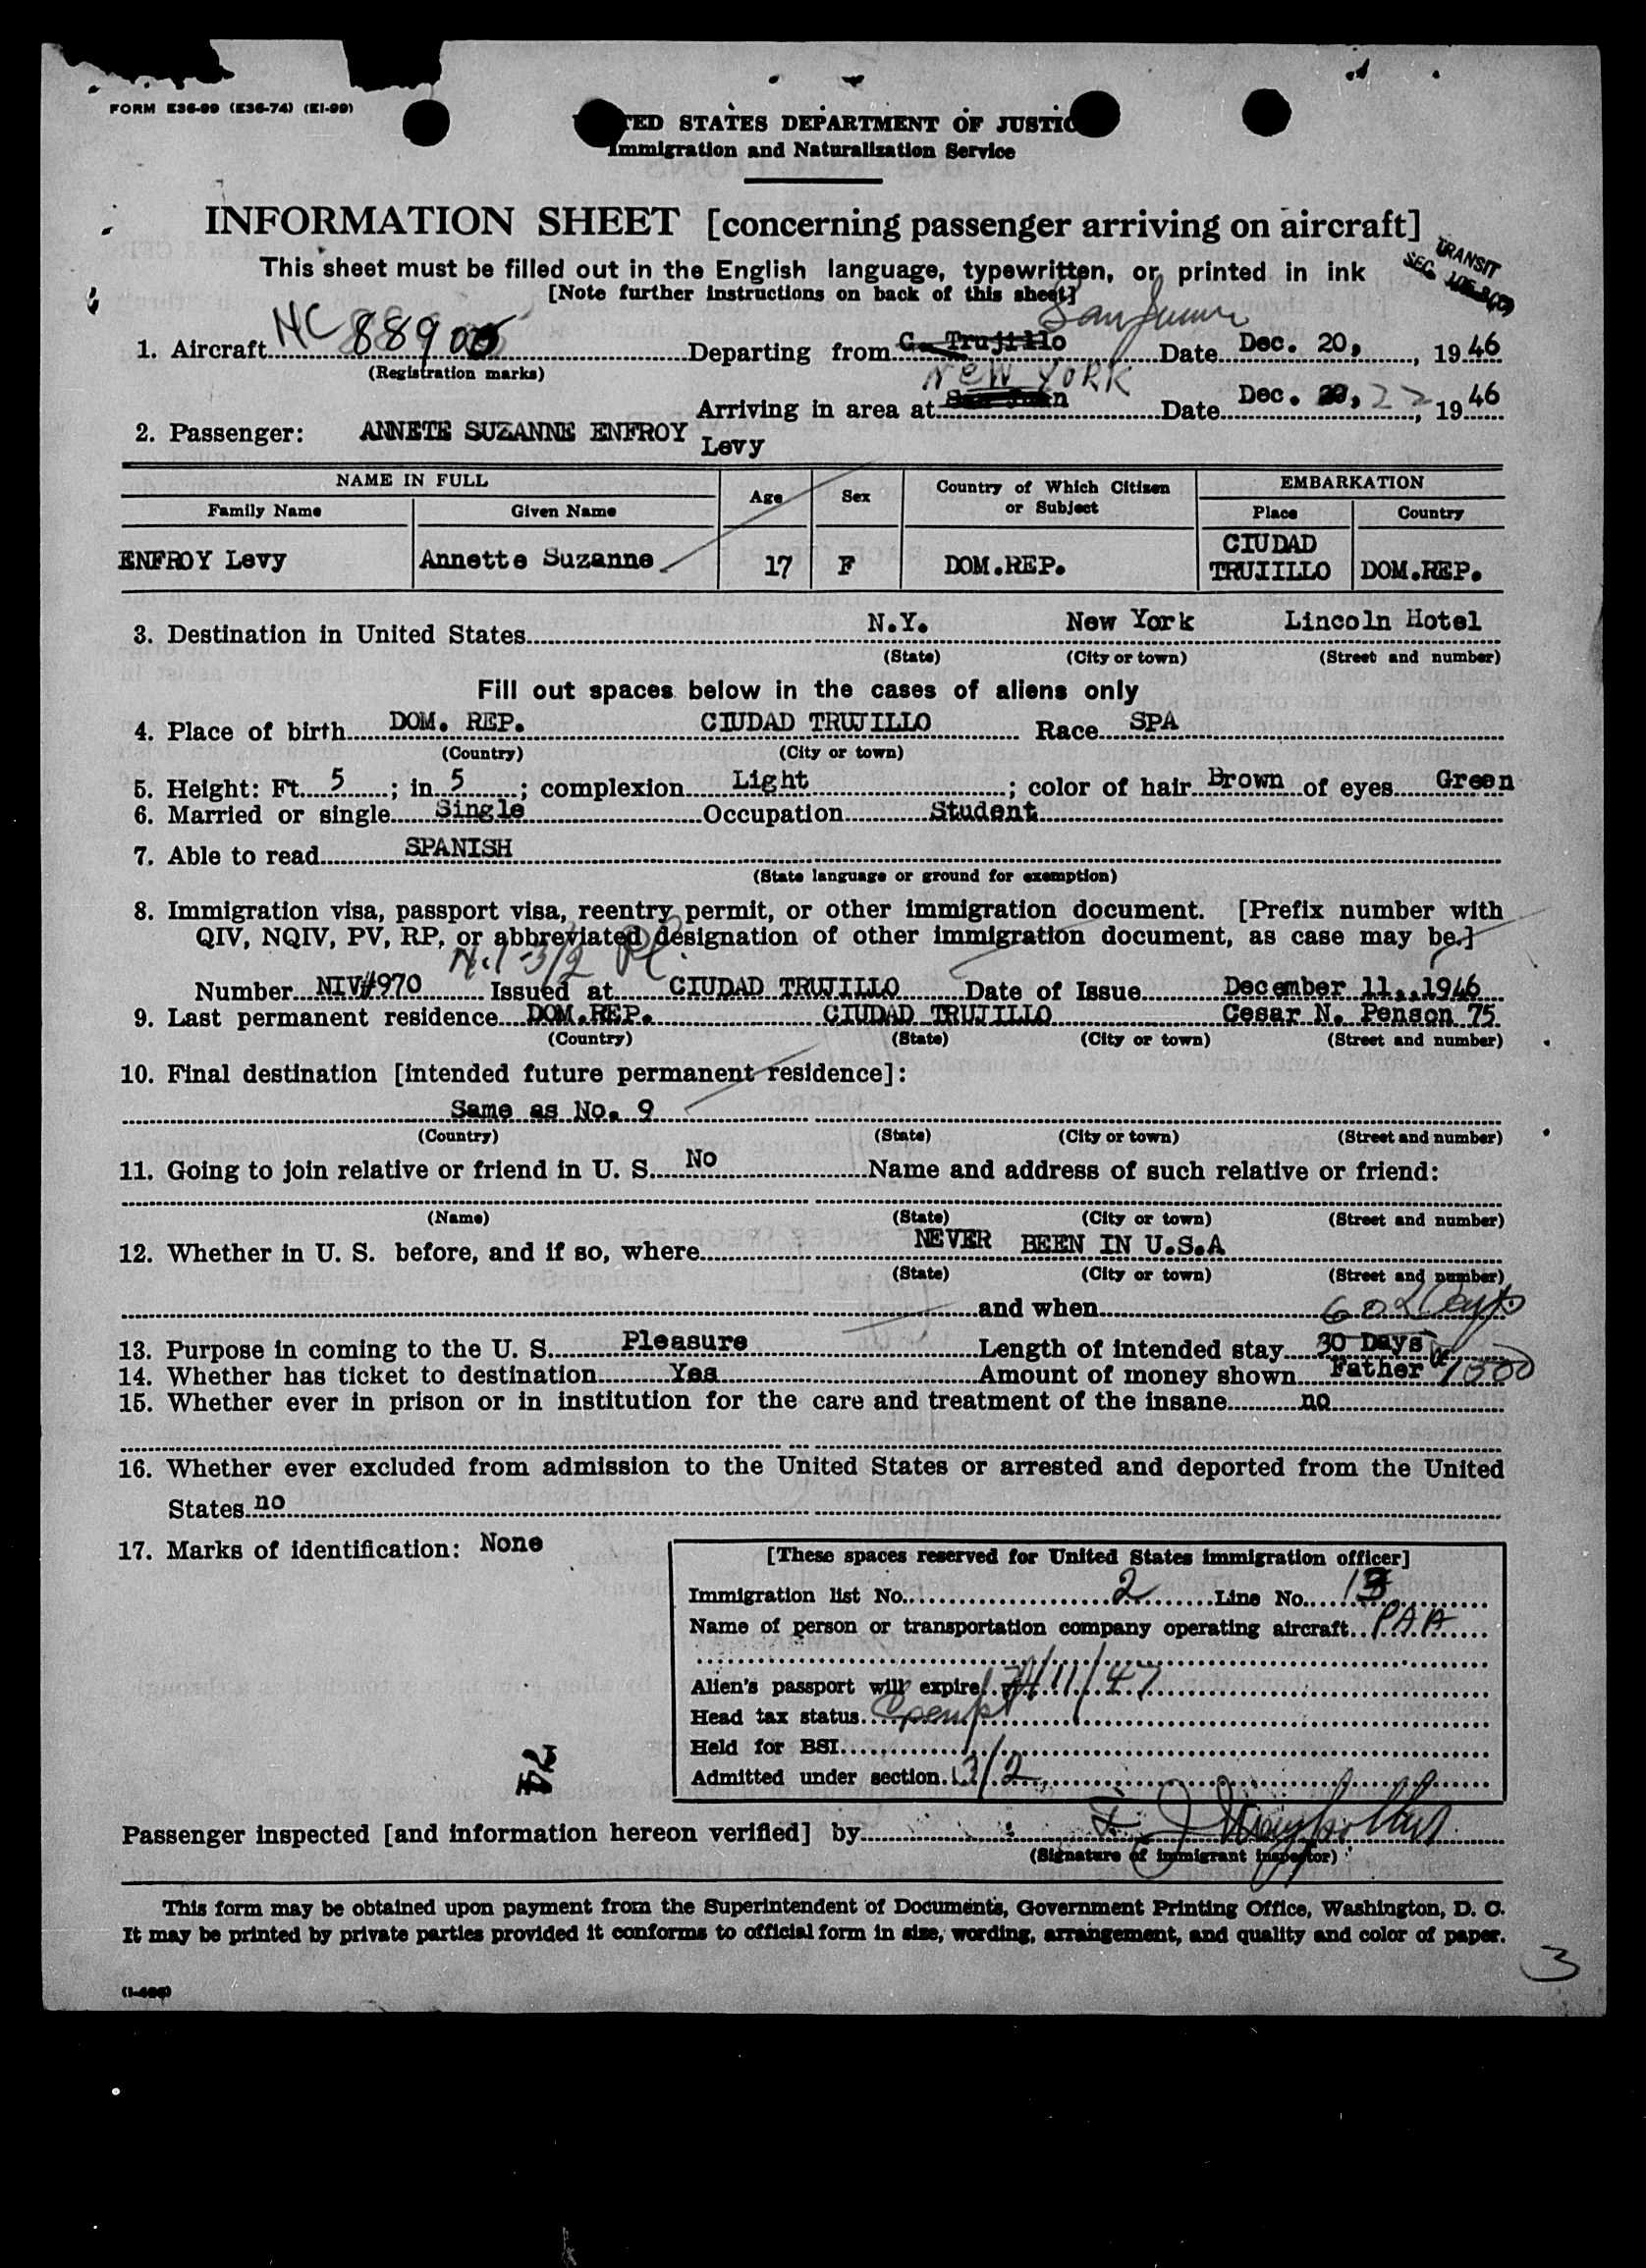 FORM E36-99 (E36-74) (EI-99)
TED STATES DEPARTMENT OF JUSTIC
Immigration and Naturalization Service
INFORMATION SHEET [concerning passenger arriving on aircraft]
This sheet must be filled out in the English language, typewritten, or printed in ink
[Note further instructions on back of this sheet]
TRANSIT
SEC.
San Juan
1. Aircraft NC 88900 Departing from C. Trujillo Date Dec. 20, , 19 46
(Registration marks)
NEW YORK
Arriving in area at San Juan Date Dec. 20, 22, 19 46
2. Passenger: ANNETE SUZANNE ENFROY
Levy
NAME IN FULL Age Sex Country of Which Citizen or Subject EMBARKATION
Family Name Given Name Place Country
ENFROY Levy Annette Suzanne 17 F DOM.REP. CIUDAD TRUIILLO DOM.REP.
3. Destination in United States N.Y. New York Lincoln Hotel
(State) (City or town) (Street and number)
Fill out spaces below in the cases of aliens only
4. Place of birth DOM. REP. CIUDAD TRUJILLO Race SPA
(Country) (City or town)
5. Height: Ft. 5 ; in 5 ; complexion Light ; color of hair Brown of eyes Green
6. Married or single Single Occupation Student
7. Able to read SPANISH
(State language or ground for exemption)
8. Immigration visa, passport visa, reentry permit, or other immigration document. [Prefix number with
QIV, NQIV, PV, RP, or abbreviated designation of other immigration document, as case may be.]
3/2
Number NIV#970 Issued at CIUDAD TRUJILLO Date of Issue December 11,,1946
9. Last permanent residence DOM.REP. CIUDAD TRUIILLO Cesar N. Penson 75
(Country) (State) (City or town) (Street and number)
10. Final destination [intended future permanent residence]:
Same as No. 9
(Country) (State) (City or town) (Street and number)
11. Going to join relative or friend in U. S. No Name and address of such relative or friend:
(Name) (State) (City or town) (Street and number)
12. Whether in U. S. before, and if so, where NEVER BEEN IN U.S.A
(State) (City or town) (Street and number)
and when 60 Days
13. Purpose in coming to the U. S. Pleasure Length of intended stay 30 Days
14. Whether has ticket to destination Yes Amount of money shown Father 1000
15. Whether ever in prison or in institution for the care and treatment of the insane no
16. Whether ever excluded from admission to the United States or arrested and deported from the United
States no
17. Marks of identification: None
[These spaces reserved for United States immigration officer]
Immigration list No. 2 Line No. 13
Name of person or transportation company operating aircraft PAA
Alien's passport will expire 11/47
Head tax status Exempt
Held for BSI
Admitted under section 3/2
24
Passenger inspected [and information hereon verified] by
(Signature of immigrant inspector)
This form may be obtained upon payment from the Superintendent of Documents, Government Printing Office, Washington, D. C.
It may be printed by private parties provided it conforms to official form in size, wording, arrangement, and quality and color of paper.
3